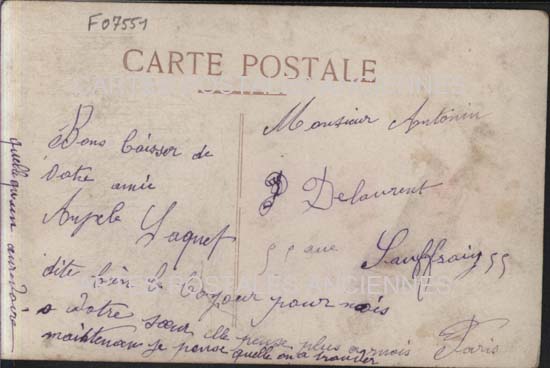 F07551
CARTE POSTALE
CARTES POSTALES ANCIENNES
Bons baisser de
votre amie
Angele Jaquet
dite bien le bonjour pour mois
a votre sœur elle pense plus a mois
maintenan je pense quelle on a trouver
Monsieur Antonin
Delaurent
55 rue Sauffroiy 55
Paris